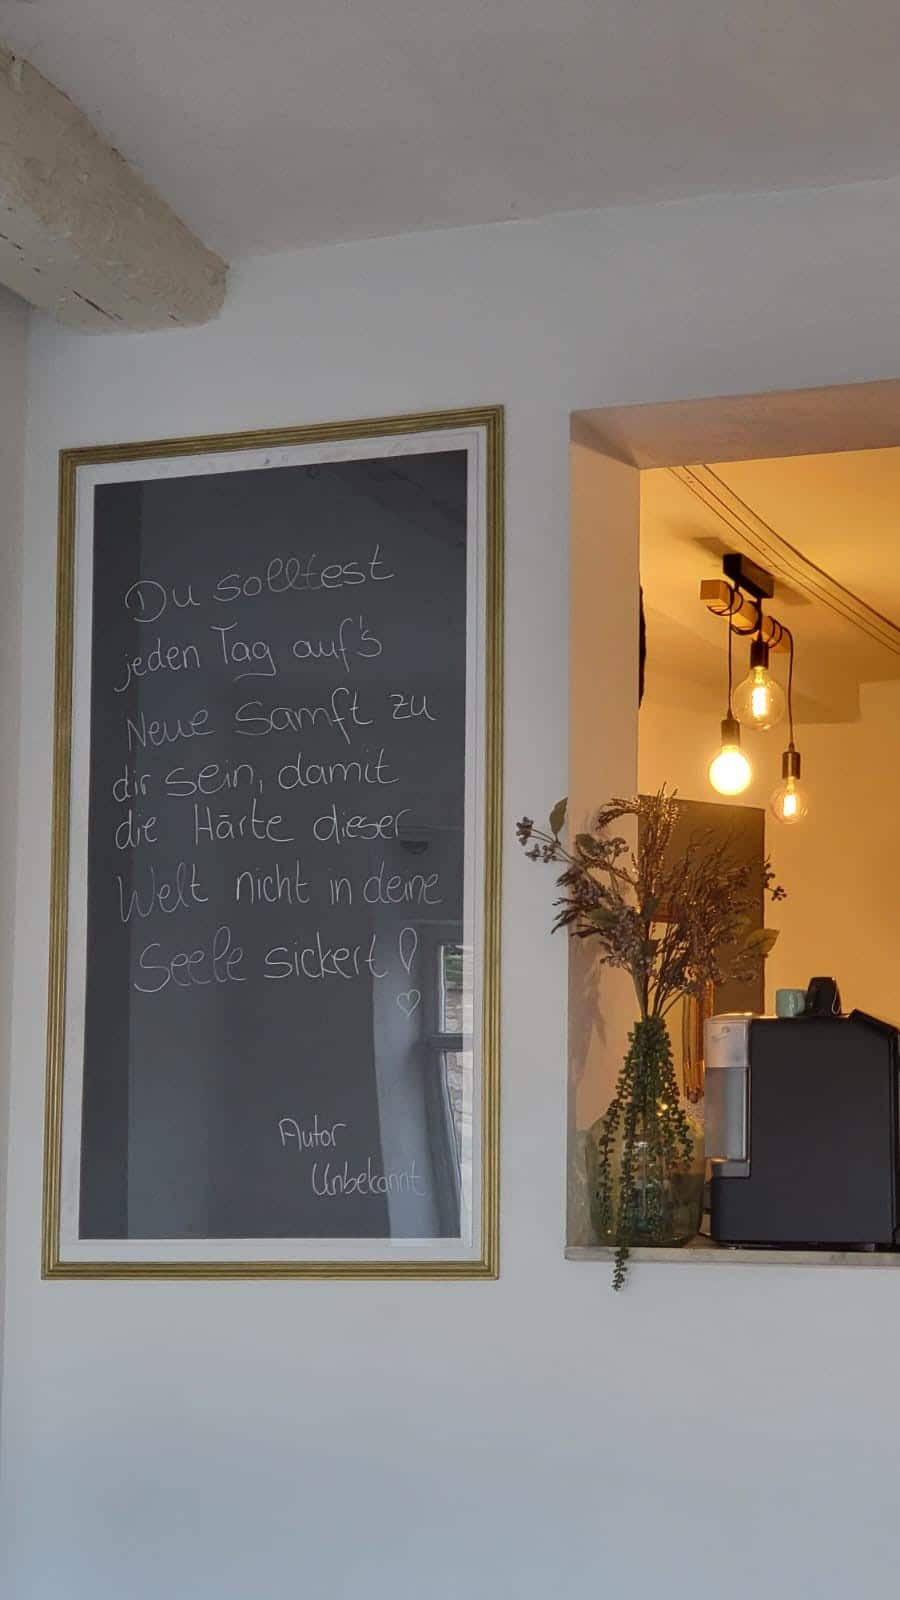 Du solltest
jeden Tag auf's
Neue Sanft zu
dir sein, damit
die Härte dieser
Welt nicht in deine
Seele sickert!
Autor
Unbekannt